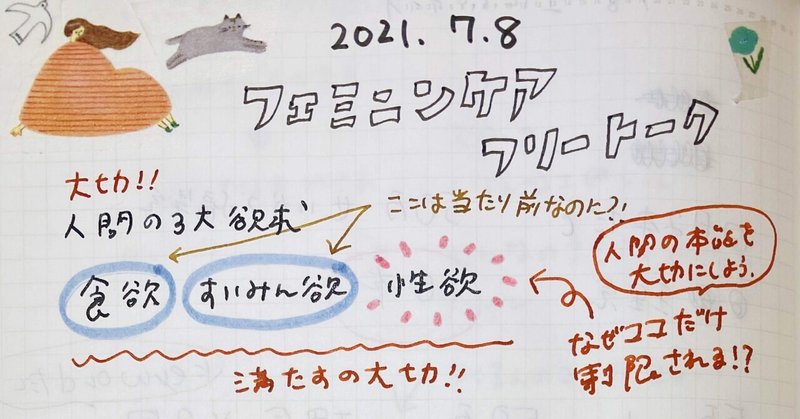 2021. 7.8
フェミニンケア
フリートーク
大切!!
人間の3大欲求
ここは当たり前なのに?!
食欲
すいみん欲
性欲
人間の本能を
大切にしよう。
なぜココだけ
制限される!?
満たすの大切!!